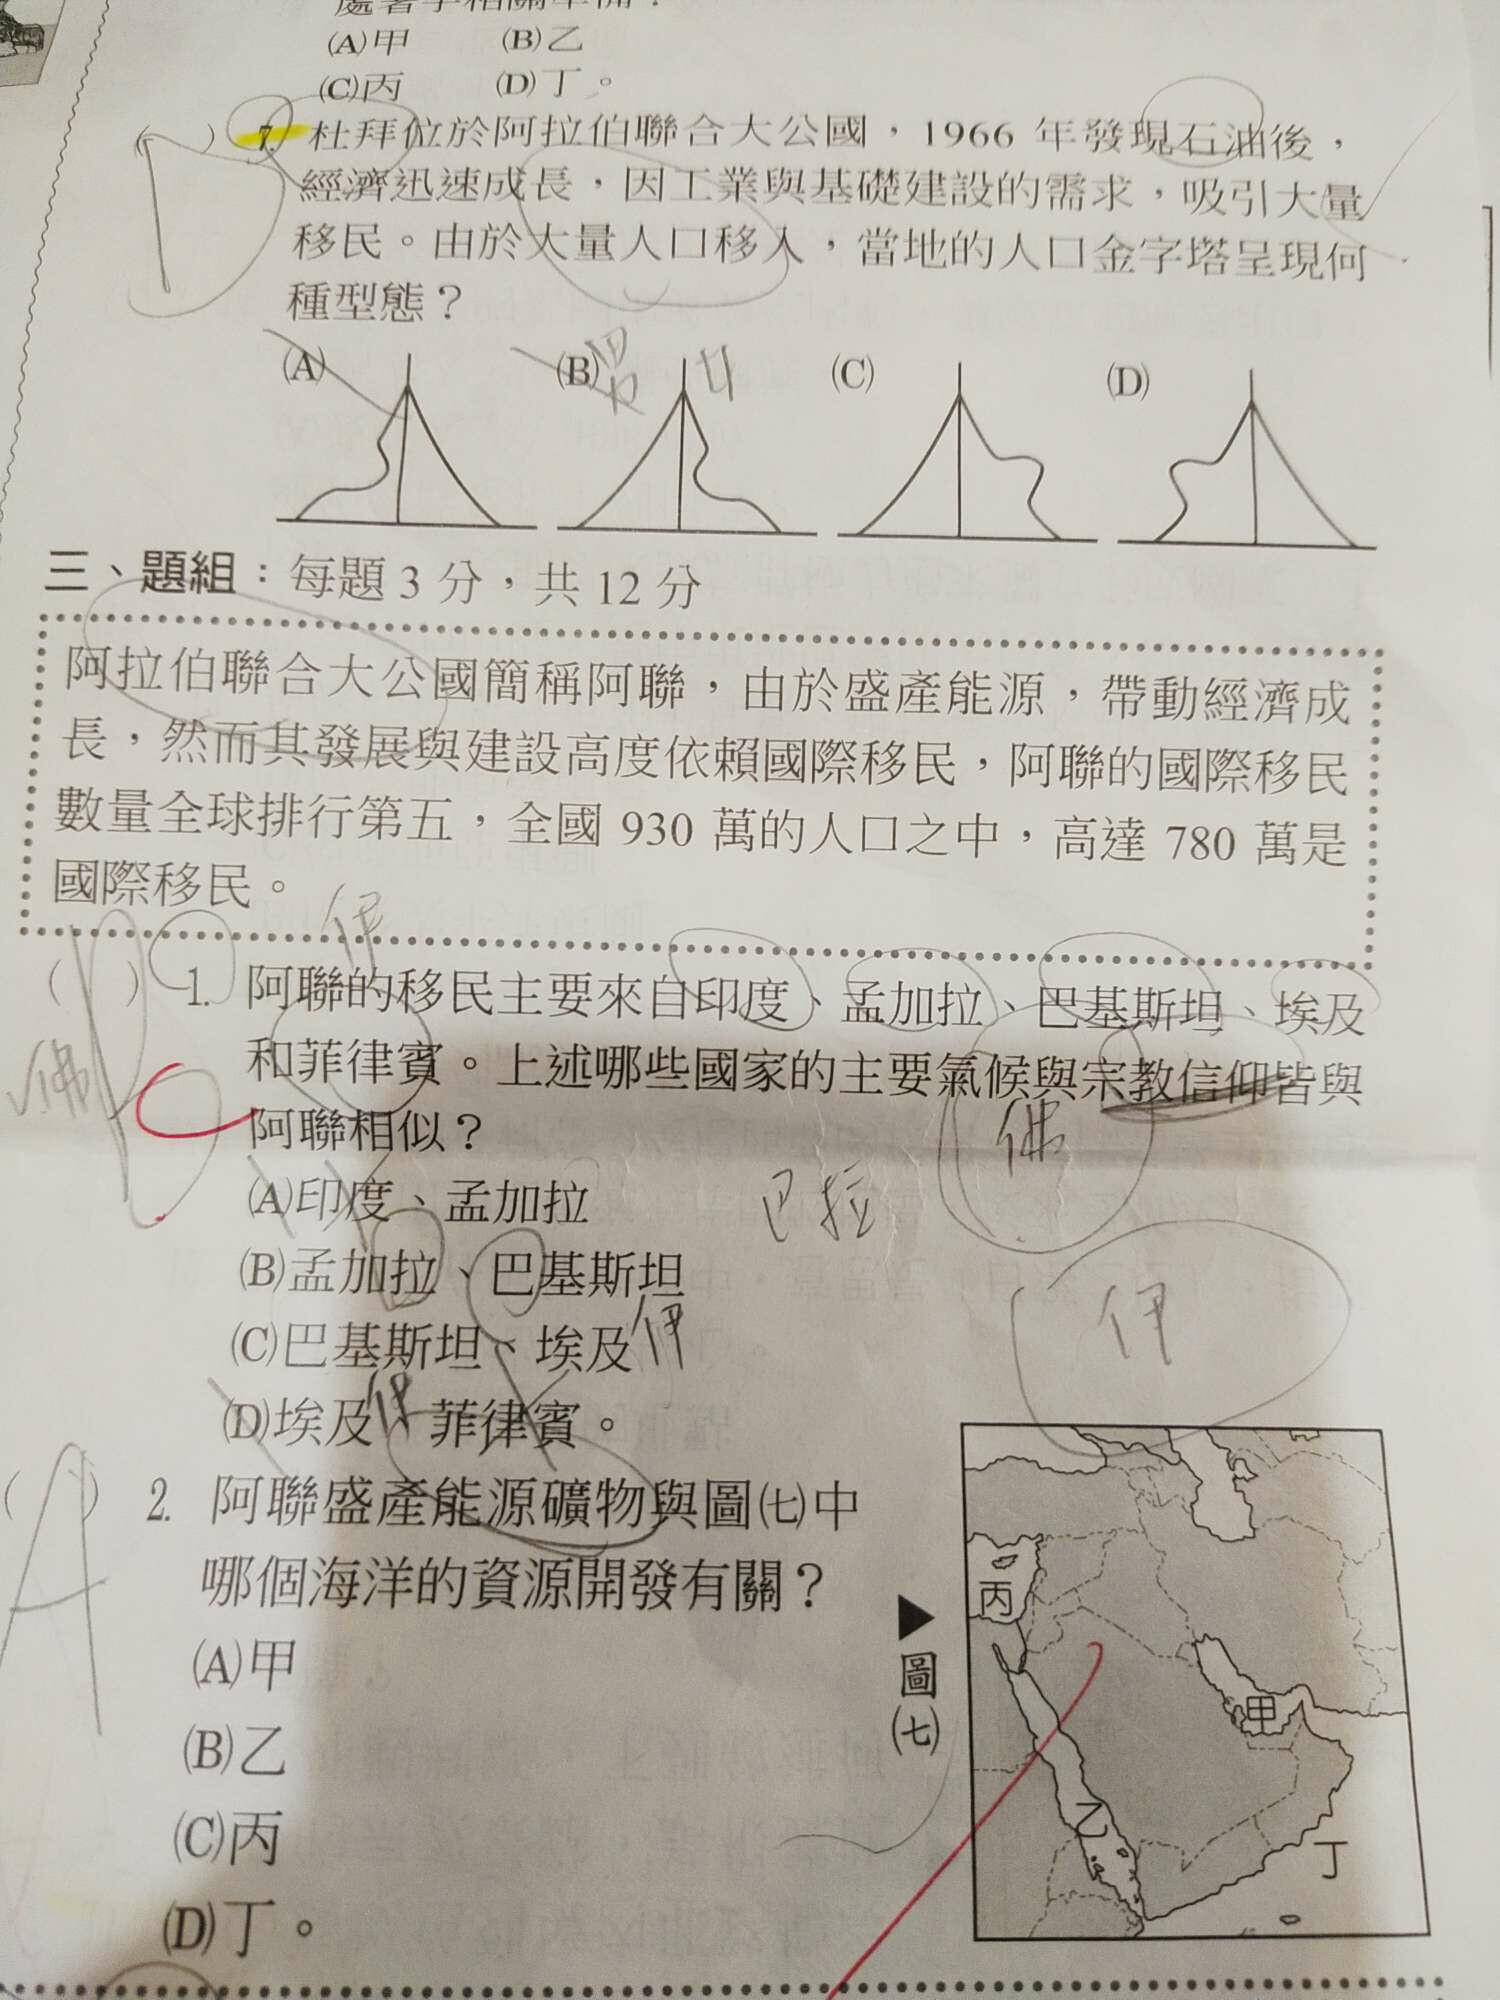 (A)甲 (B)乙
(C)丙 (D)丁。
( ) 7. 杜拜位於阿拉伯聯合大公國，1966 年發現石油後，
經濟迅速成長，因工業與基礎建設的需求，吸引大量
移民。由於大量人口移入，當地的人口金字塔呈現何
種型態？
(A) (B) 男 女 (C) (D)
三、題組：每題 3 分，共 12 分
阿拉伯聯合大公國簡稱阿聯，由於盛產能源，帶動經濟成
長，然而其發展與建設高度依賴國際移民，阿聯的國際移民
數量全球排行第五，全國 930 萬的人口之中，高達 780 萬是
國際移民。
伊
( ) 1. 阿聯的移民主要來自印度、孟加拉、巴基斯坦、埃及
和菲律賓。上述哪些國家的主要氣候與宗教信仰皆與
佛
阿聯相似？
佛
(A)印度、孟加拉
巴拉
(B)孟加拉、巴基斯坦
(C)巴基斯坦、埃及 伊
伊
(D)埃及 伊、菲律賓。
A
( ) 2. 阿聯盛產能源礦物與圖(七)中
哪個海洋的資源開發有關？
(A)甲
(B)乙
(C)丙
(D)丁。
▶圖(七)
丙
甲
乙
丁